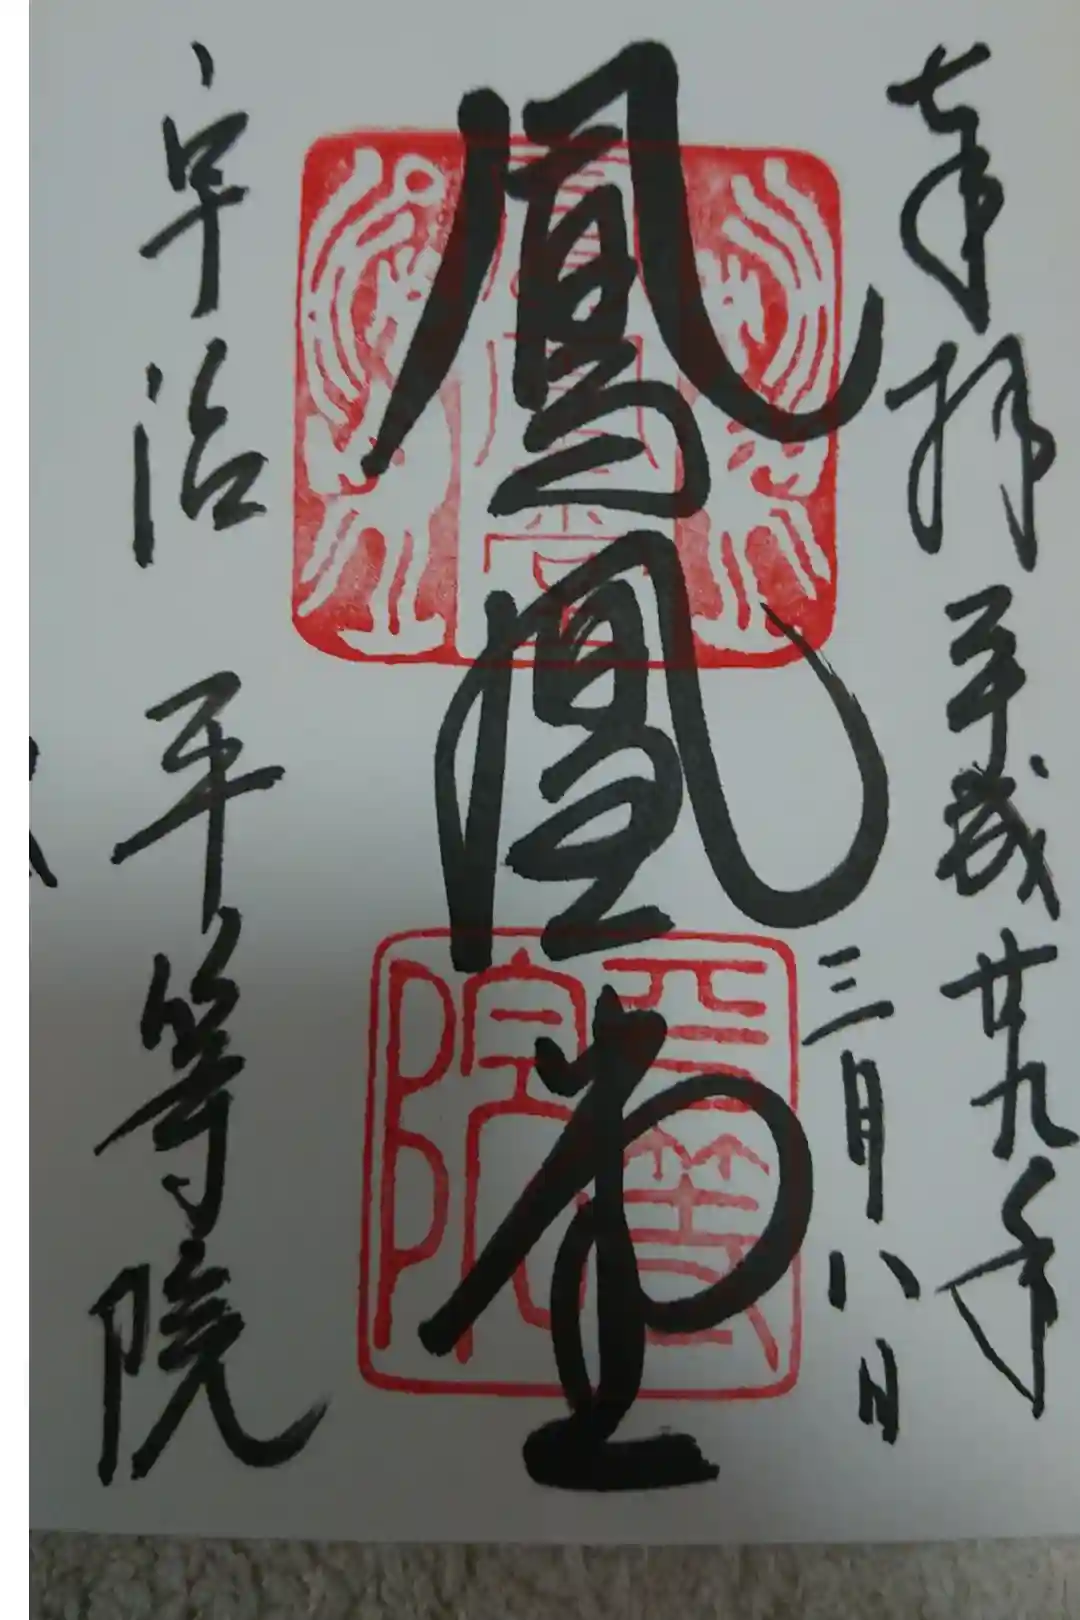 奉拝
平成廿九年
三月八日
鳳凰堂
平等院
宇治 平等院